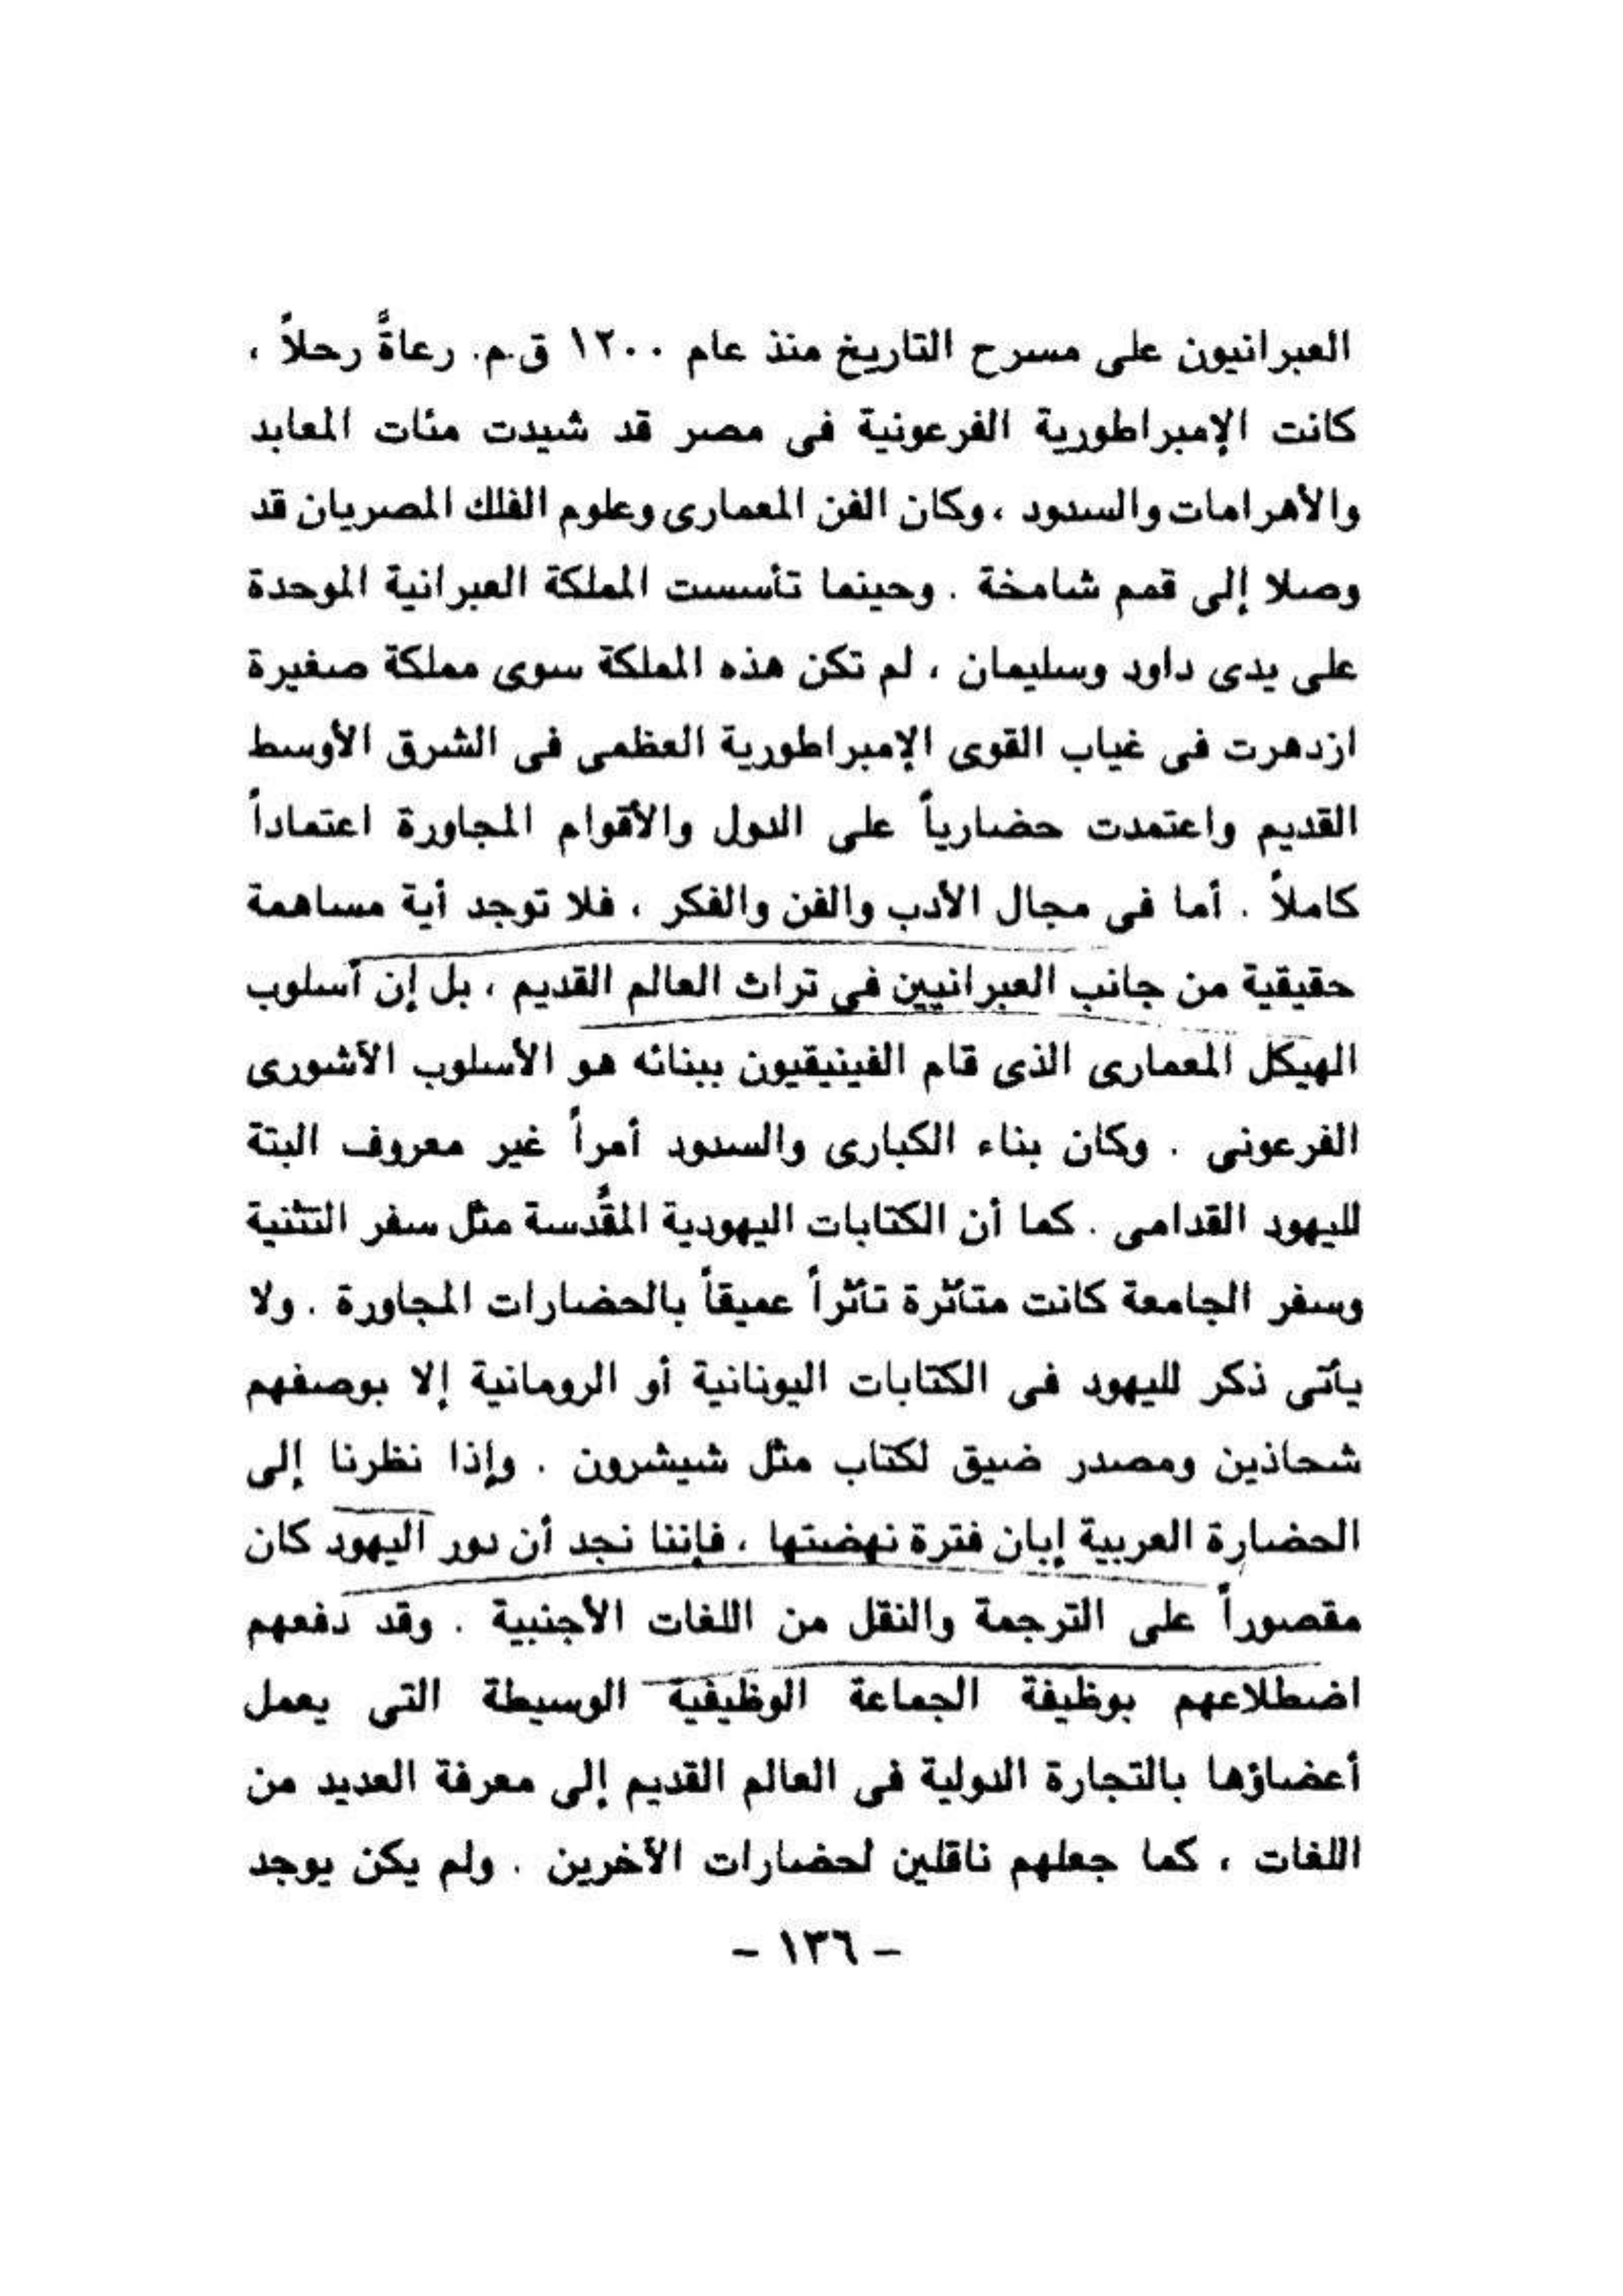 العبرانيون على مسرح التاريخ منذ عام ١٢٠٠ ق.م. رعاةً رحلاً ،
كانت الإمبراطورية الفرعونية فى مصر قد شيدت مئات المعابد
والأهرامات والسدود ، وكان الفن المعمارى وعلوم الفلك المصريان قد
وصلا إلى قمم شامخة . وحينما تأسست المملكة العبرانية الموحدة
على يدى داود وسليمان ، لم تكن هذه المملكة سوى مملكة صغيرة
ازدهرت فى غياب القوى الإمبراطورية العظمى فى الشرق الأوسط
القديم واعتمدت حضارياً على الدول والأقوام المجاورة اعتماداً
كاملاً . أما فى مجال الأدب والفن والفكر ، فلا توجد أية مساهمة
حقيقية من جانب العبرانيين فى تراث العالم القديم ، بل إن أسلوب
الهيكل المعمارى الذى قام الفينيقيون ببنائه هو الأسلوب الأشورى
الفرعونى . وكان بناء الكبارى والسدود أمراً غير معروف البتة
لليهود القدامى . كما أن الكتابات اليهودية المقَّدسة مثل سفر التثنية
وسفر الجامعة كانت متأثرة تأثراً عميقاً بالحضارات المجاورة . ولا
يأتى ذكر لليهود فى الكتابات اليونانية أو الرومانية إلا بوصفهم
شحاذين ومصدر ضيق لكتاب مثل شيشرون . وإذا نظرنا إلى
الحضارة العربية إبان فترة نهضتها ، فإننا نجد أن دور اليهود كان
مقصوراً على الترجمة والنقل من اللغات الأجنبية . وقد دفعهم
اضطلاعهم بوظيفة الجماعة الوظيفية الوسيطة التى يعمل
أعضاؤها بالتجارة الدولية فى العالم القديم إلى معرفة العديد من
اللغات ، كما جعلهم ناقلين لحضارات الأخرين . ولم يكن يوجد
– ١٣٦ –